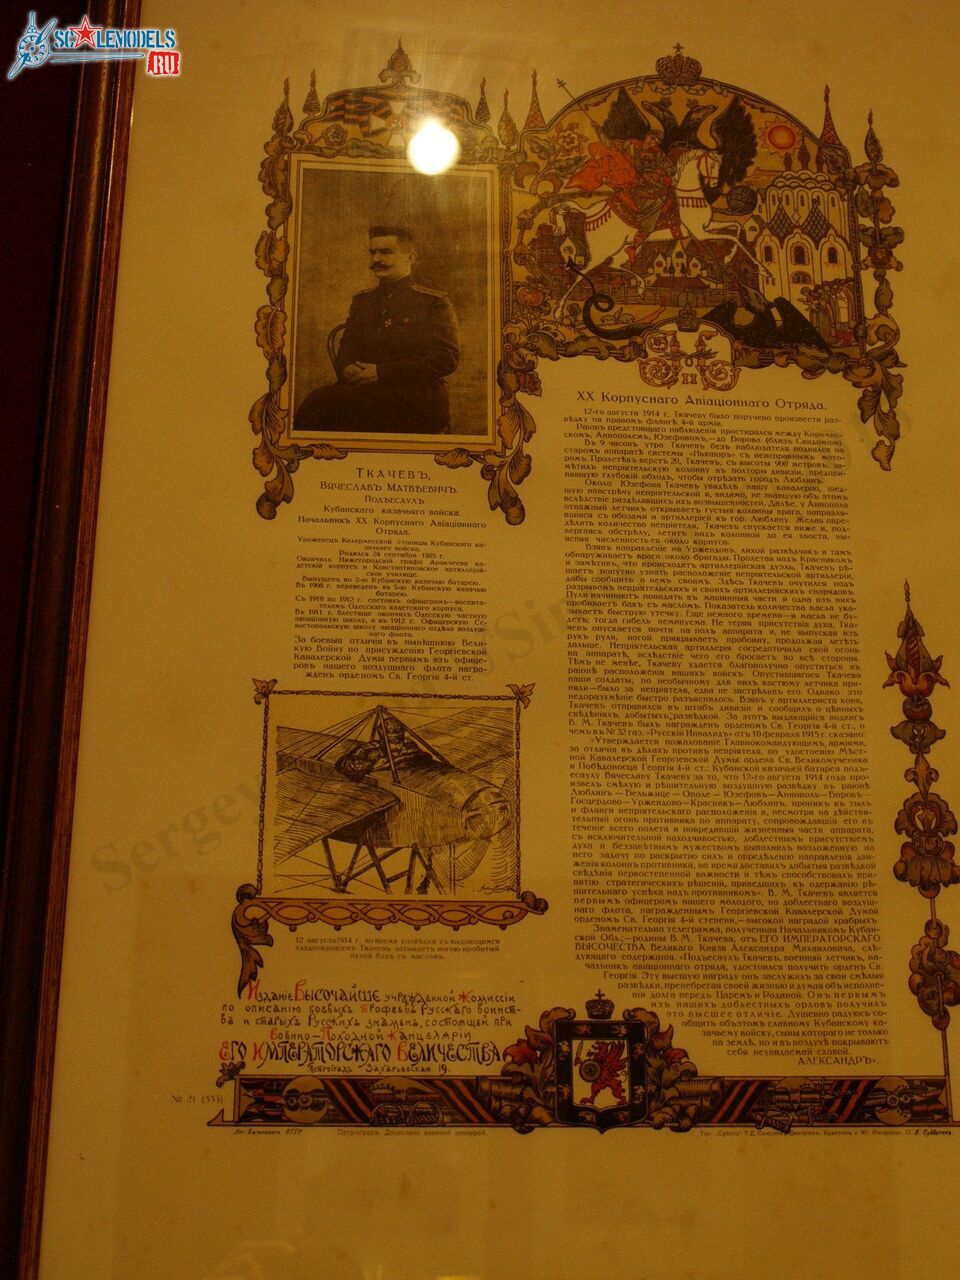 SCALEMODELS
RU
II
XX Корпуснаго Авіаціоннаго Отряда.
12-го августа 1914 г. Ткачеву было поручено произвести раз-
вѣдку на правомъ флангѣ 4-й арміи.
Раіонъ предстоящаго наблюденія простирался между Корчмин-
скомъ, Аннополемъ, Юзефовомъ,—до Ворова (близъ Сандоміра).
Въ 9 часовъ утра Ткачевъ безъ наблюдателя поднялся на
старомъ аппаратѣ системы «Ньюпоръ» съ неисправнымъ мото-
ромъ. Пролетѣвъ верстъ 20, Ткачевъ, съ высоты 900 метровъ, за-
мѣтилъ непріятельскую колонну въ полторы дивизіи, предприн-
явшую глубокій обходъ, чтобы отрѣзать городъ Люблинъ.
Около Юзефова Ткачевъ увидѣлъ нашу кавалерію, шед-
шую навстрѣчу непріятельской и, видимо, не знавшую объ этомъ
вслѣдствіе раздѣлявшихъ ихъ возвышенностей. Далѣе, у Аннополя
отважный летчикъ открываетъ густыя колонны врага, направля-
вшіяся съ обозами и артиллеріей къ гор. Люблину. Желая опре-
дѣлить количество непріятеля, Ткачевъ спускается ниже и, под-
вергаясь обстрѣлу, летитъ надъ колонной до ея хвоста, вы-
яснивъ численность ея около корпуса.
Взявъ направленіе на Уржендовъ, лихой развѣдчикъ и тамъ
обнаруживаетъ врага около бригады. Пролетая надъ Красникомъ
и замѣтивъ, что происходитъ артиллерійская дуэль, Ткачевъ рѣ-
шаетъ попутно узнать расположеніе непріятельской артиллеріи,
дабы сообщить о немъ своимъ. Здѣсь Ткачевъ очутился подъ
разрывомъ непріятельскихъ и своихъ артиллерійскихъ снарядовъ.
Пули начинаютъ попадать въ машинныя части и одна изъ нихъ
пробиваетъ бакъ съ масломъ. Показатель количества масла ука-
зываетъ быструю утечку. Еще немного времени—и масла не бу-
детъ; тогда гибель неминуема. Не теряя присутствія духа, Тка-
чевъ опускается почти на полъ аппарата и, не выпуская изъ
рукъ руля, ногой прикрываетъ пробоину, продолжая летѣть
дальше. Непріятельская артиллерія сосредоточила свой огонь
на аппаратѣ, вслѣдствіе чего его бросаетъ во всѣ стороны.
Тѣмъ не менѣе, Ткачеву удается благополучно опуститься въ
раіонѣ расположенія нашихъ войскъ. Опустившагося Ткачева
наши солдаты, по необычному для нихъ костюму летчика при-
няли—было за непріятеля, едва не застрѣливъ его. Однако это
недоразумѣніе быстро разъяснилось. Взявъ у артиллериста коня,
Ткачевъ отправился въ штабъ дивизіи и сообщилъ о цѣнныхъ
свѣдѣніяхъ, добытыхъ развѣдкой. За этотъ выдающійся подвигъ
В. М. Ткачевъ былъ награжденъ орденомъ Св. Георгія 4-й ст., о
чемъ въ № 32 газ. «Русскій Инвалидъ» отъ 10 февраля 1915 г. сказано:
«Утверждается пожалованіе Главнокомандующимъ, арміями,
за отличія въ дѣлахъ противъ непріятеля, по удостоенію Мѣст-
ной Кавалерской Георгіевской Думы: ордена Св. Великомученика
и Побѣдоносца Георгія 4-й ст.: Кубанской казачьей батареи подъ-
есаулу Вячеславу Ткачеву за то, что 12-го августа 1914 года про-
извелъ смѣлую и рѣшительную воздушную развѣдку въ раіонѣ
Люблинъ—Бельжице—Ополе—Юзефовъ—Аннополь—Боровъ—
Госцердово—Уржендово—Красникъ—Люблинъ, проникъ въ тылъ
и фланги непріятельскаго расположенія и, несмотря на дѣйстви-
тельный огонь противника по аппарату, сопровождавшій его въ
теченіе всего полета и повредившій жизненныя части аппарата,
съ исключительной находчивостью, доблестнымъ присутствіемъ
духа и беззавѣтнымъ мужествомъ выполнилъ возложенную на
него задачу по раскрытію силъ и опредѣленію направленія дви-
женія колоннъ противника, во время доставилъ добытыя развѣдкой
свѣдѣнія первостепенной важности и тѣмъ способствовалъ при-
нятію стратегическихъ рѣшеній, приведшихъ къ одержанію рѣ-
шительнаго успѣха надъ противникомъ». В. М. Ткачевъ является
первымъ офицеромъ нашего молодого, но доблестнаго воздуш-
наго флота, награжденнымъ Георгіевской Кавалерской Думой
орденомъ Св. Георгія 4-й степени,—высокой наградой храбрыхъ.
Знаменательна телеграмма, полученная Начальникомъ Кубан-
ской Обл.;—родины В. М. Ткачева, отъ ЕГО ИМПЕРАТОРСКАГО
ВЫСОЧЕСТВА Великаго Князя Александра Михаиловича, слѣ-
дующаго содержанія. «Подъесаулъ Ткачевъ, военный летчикъ, на-
чальникъ авіаціоннаго отряда, удостоился получить орденъ Св.
Георгія. Эту высшую награду онъ заслужилъ за свои смѣлыя
развѣдки, пренебрегая своей жизнью и думая объ исполне-
ніи долга передъ Царемъ и Родиной. Онъ первымъ
изъ нашихъ доблестныхъ орловъ получилъ
это высшее отличіе. Душевно радуюсь со-
общить объ этомъ славному Кубанскому ка-
зачьему войску, сыны котораго не только
на землѣ, но и въ воздухѣ покрываютъ
себя неувядаемой славой.
АЛЕКСАНДРЪ».
Ткачевъ,
Вячеславъ Матвѣевичъ.
Подъесаулъ
Кубанскаго казачьяго войска.
Начальникъ XX Корпуснаго Авіаціоннаго
Отряда.
Уроженецъ Келермесской станицы Кубанскаго ка-
зачьяго войска.
Родился 24 сентября 1885 г.
Окончилъ Нижегородскій графа Аракчеева ка-
детскій корпусъ и Константиновское артиллерій-
ское училище.
Выпущенъ во 2-ю Кубанскую казачью батарею.
Въ 1906 г. переведенъ въ 5-ю Кубанскую казачью
батарею.
Съ 1910 по 1912 г. состоялъ офицеромъ—воспита-
телемъ Одесскаго кадетскаго корпуса.
Въ 1911 г. блестяще окончилъ Одесскую частную
авіаціонную школу, а въ 1912 г. Офицерскую Се-
вастопольскую школу авіаціоннаго отдѣла воздуш-
наго флота.
За боевыя отличія въ нынѣшнюю Вели-
кую Войну по присужденію Георгіевской
Кавалерской Думы первымъ изъ офице-
ровъ нашего воздушнаго флота награ-
жденъ орденомъ Св. Георгія 4-й ст.
12 августа 1914 г. во время развѣдки съ выдающимся
хладнокровіемъ Ткачевъ затыкаетъ ногою пробитый
пулей бакъ съ масломъ.
Изданіе Высочайше учрежденной Комиссіи
по описанію боевыхъ трофеевъ Русскаго воинст-
ва и старыхъ Русскихъ знаменъ, состоящей при
Военно-Походной Канцеляріи
Его Императорскаго Величества
Петроградъ Захарьевская 19.
№ 21 (333).
Петроградъ. Дозволено военной цензурой.